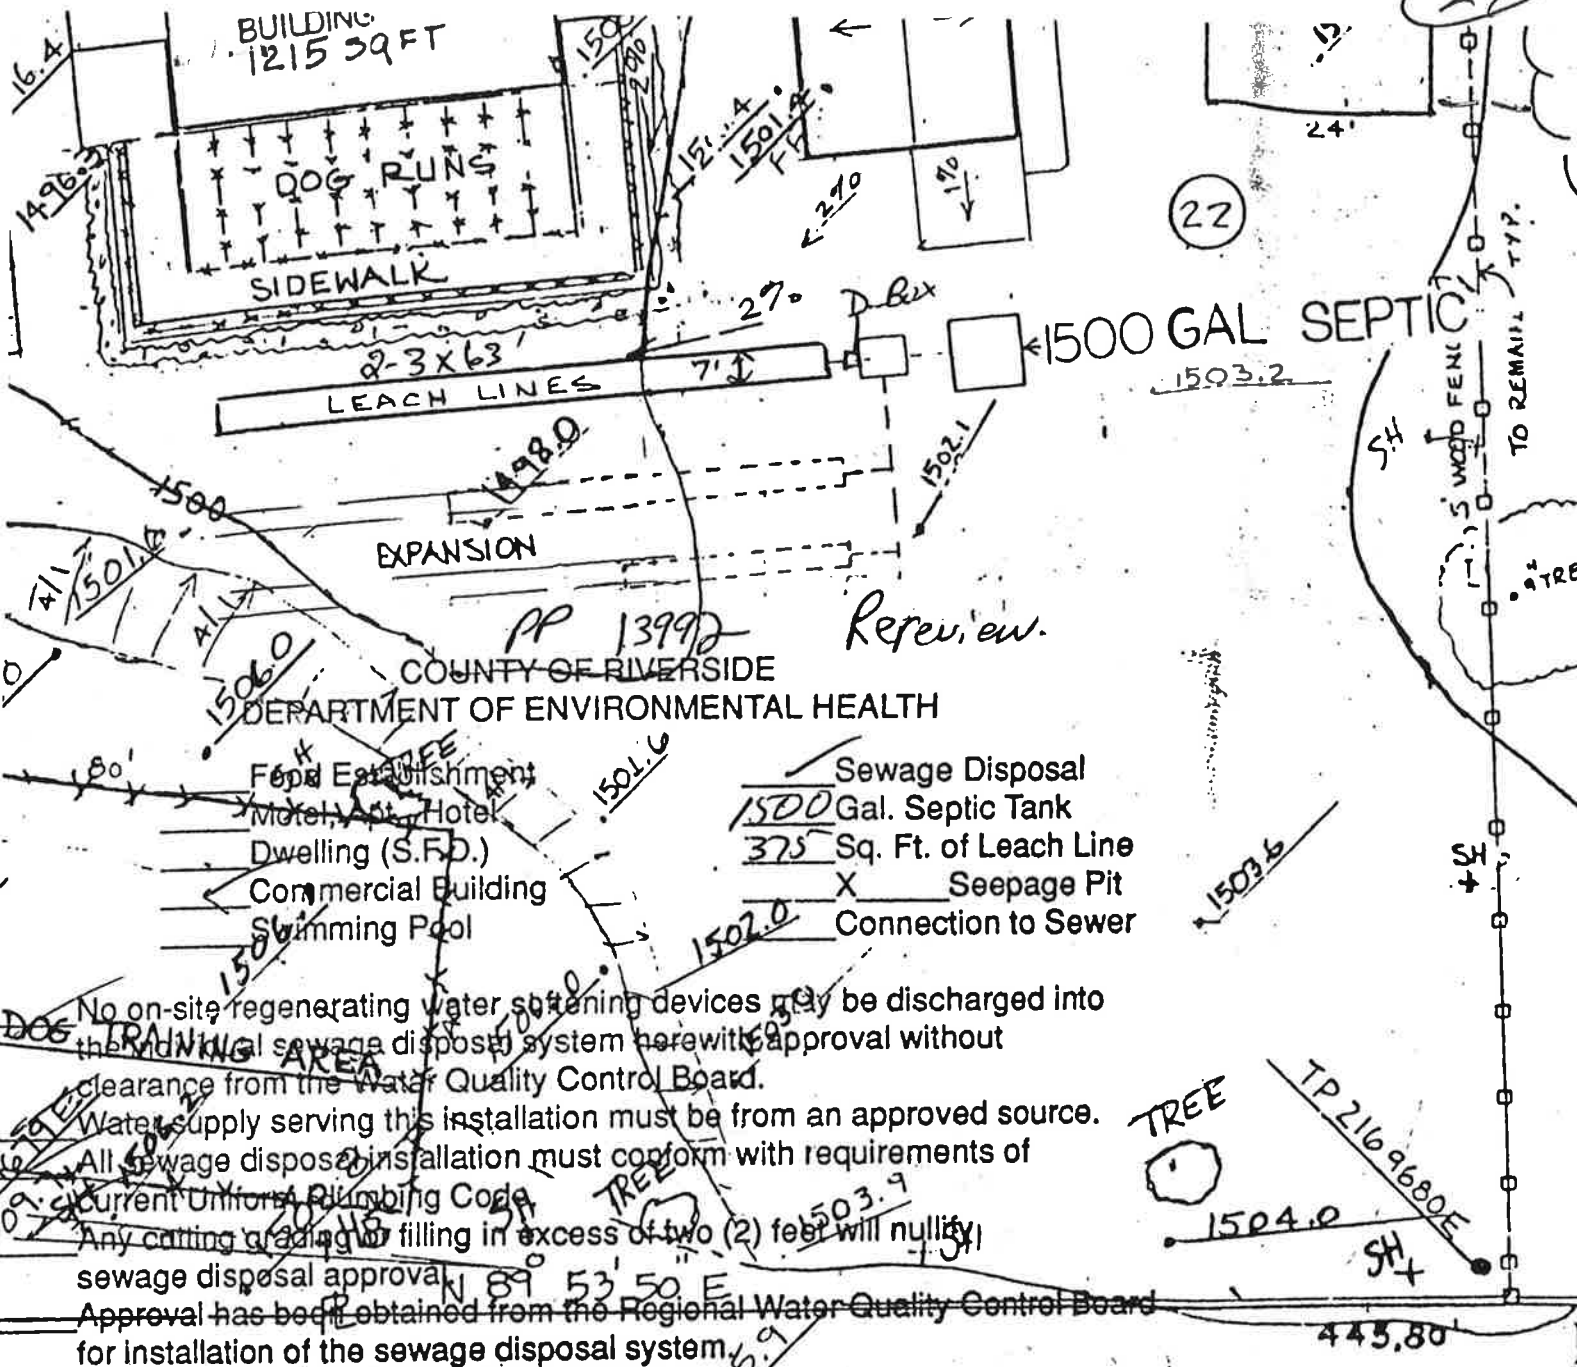 BUILDING
1215 SQ FT
16.4
2%
24'
DOG RUNS
1496.3
1501.4
FF
2%
1%
22
SIDEWALK
TYP.
TO REMAIN
5' WOOD FENC
2%
D-Box
1500 GAL SEPTIC
1503.2
2-3 x 63'
7'
LEACH LINES
SH
1498.0
1502.1
1500
EXPANSION
4/1
1501.
4/1
TREE
PP 13992
Rereview.
1506.0
COUNTY OF RIVERSIDE
DEPARTMENT OF ENVIRONMENTAL HEALTH
80'
SH
TREE
1501.6
Food Establishment
Motel, Apt., Hotel
Dwelling (S.F.D.)
Commercial Building
Swimming Pool
Sewage Disposal
1500 Gal. Septic Tank
375 Sq. Ft. of Leach Line
X Seepage Pit
Connection to Sewer
1503.6
SH
1502.0
No on-site regenerating water softening devices may be discharged into
the individual sewage disposal system herewith approval without
clearance from the Water Quality Control Board.
DOG TRAINING AREA
Water supply serving this installation must be from an approved source.
All sewage disposal installation must conform with requirements of
current Uniform Plumbing Code.
Any cutting grading or filling in excess of two (2) feet will nullify
sewage disposal approval.
Approval has been obtained from the Regional Water Quality Control Board
for installation of the sewage disposal system.
TREE
SH
1503.9
SH
TREE
TP 2169680E
1504.0
SH
N 89° 53' 50" E
445.80'